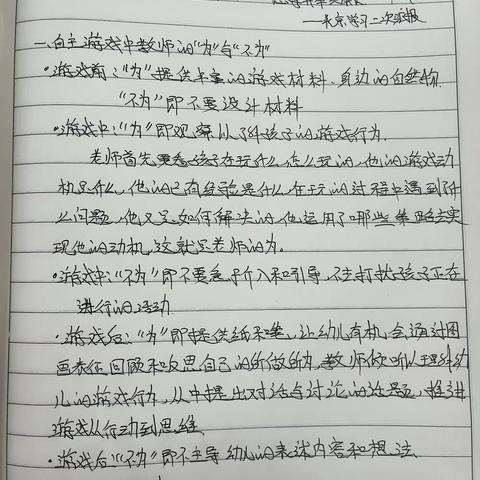 ——北京学习二次汇报
一.自主游戏中教师的“为”与“不为”
·游戏前:“为”提供丰富的游戏材料.身边的自然物.
“不为”即不要设计材料
·游戏中:“为”即观察以了解孩子的游戏行为.
老师首先要看孩子在玩什么,怎么玩的,他的游戏动
机是什么,他的已有经验是什么,在玩的过程中遇到了什
么问题,他又是如何解决的,他运用了哪些策略去实
现他的动机,这就是老师的为。
·游戏中:“不为”即不要急于介入和引导,不去打扰孩子正在
进行的活动.
·游戏后:“为”即提供纸和笔,让幼儿有机会通过图
画表征回顾和反思自己的所做所为,教师倾听以理解幼
儿的游戏行为,从中提出对话与讨论的话题,推进
游戏从行动到思维.
·游戏后:“不为”即不主导幼儿的表述内容和想法.